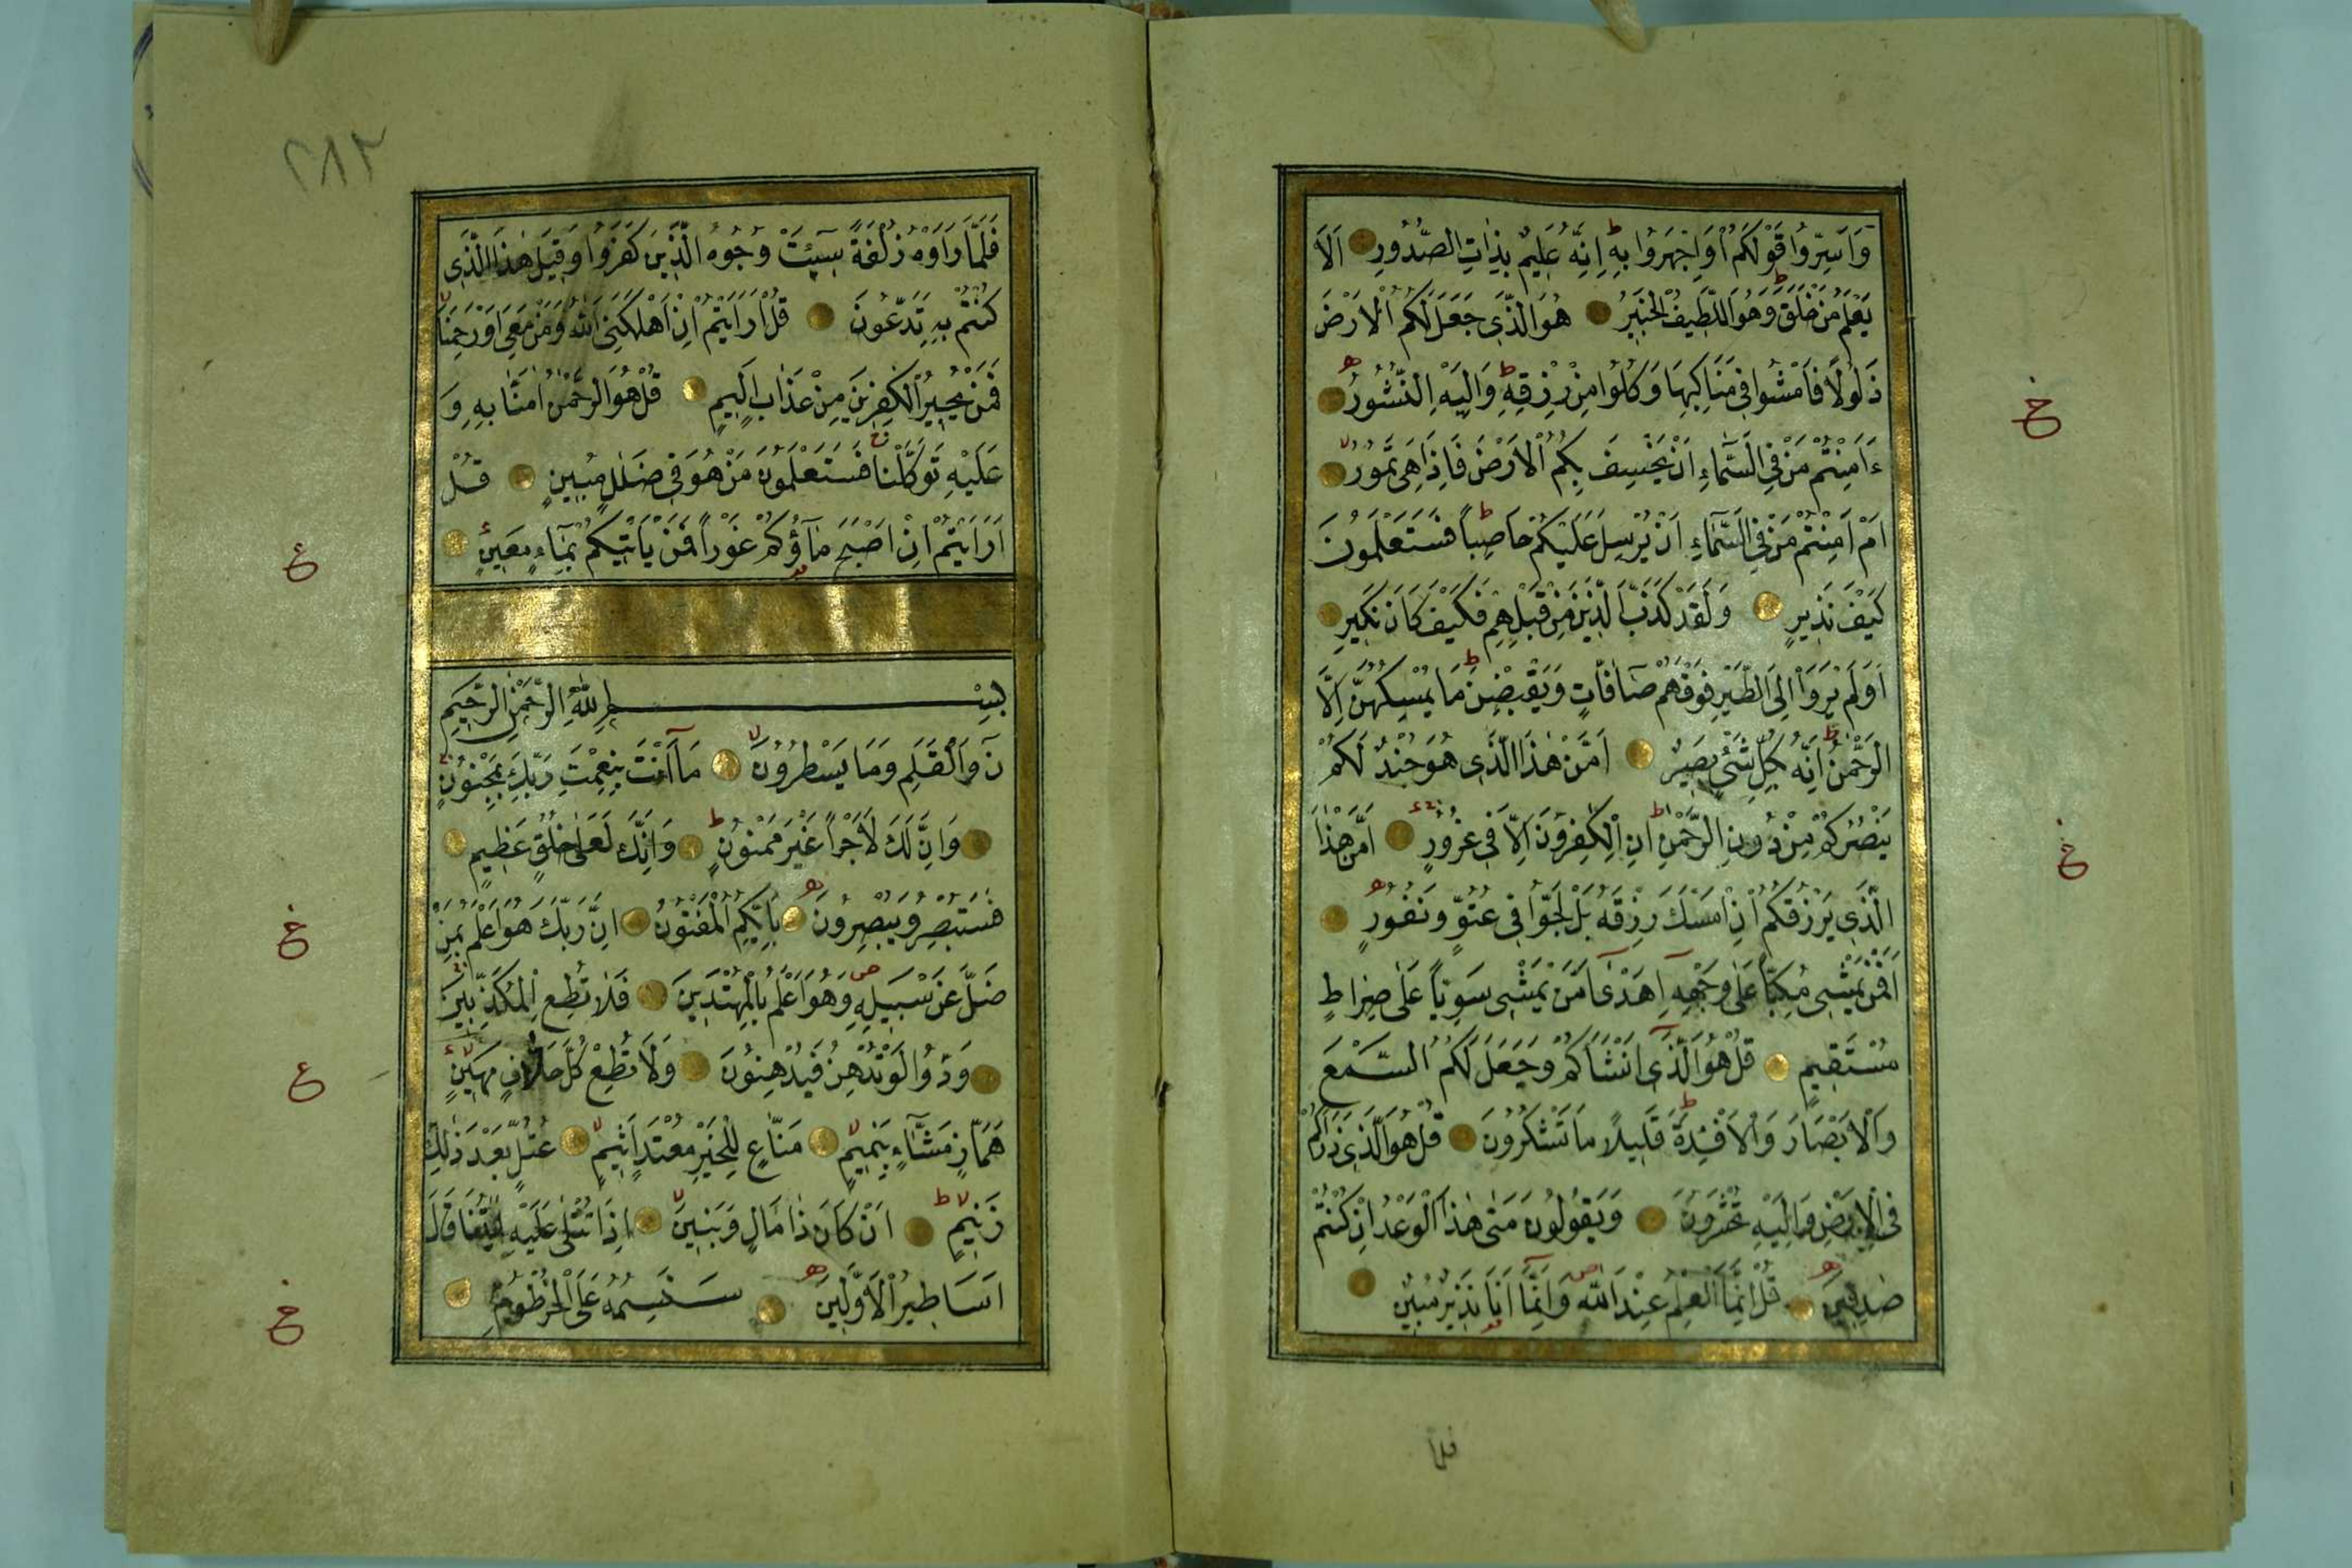 وَاَسِرُّوا قَوْلَكُمْ اَوِاجْهَرُوا بِهِ ط اِنَّهُ عَلِيمٌ بِذَاتِ الصُّدُورِ اَلَا
يَعْلَمُ مَنْ خَلَقَ ط وَهُوَ اللَّطِيفُ الْخَبِيرُ هُوَ الَّذِى جَعَلَ لَكُمُ الْاَرْضَ
ذَلُولًا فَامْشُوا فِى مَنَاكِبِهَا وَكُلُوا مِنْ رِزْقِهِ ط وَاِلَيْهِ النُّشُورُ ه
خ
ءَاَمِنْتُمْ مَنْ فِى السَّمَاءِ اَنْ يَخْسِفَ بِكُمُ الْاَرْضَ فَاِذَا هِىَ تَمُورُ لا
اَمْ اَمِنْتُمْ مَنْ فِى السَّمَاءِ اَنْ يُرْسِلَ عَلَيْكُمْ حَاصِبًا ط فَسَتَعْلَمُونَ
كَيْفَ نَذِيرِ وَلَقَدْ كَذَّبَ الَّذِينَ مِنْ قَبْلِهِمْ فَكَيْفَ كَانَ نَكِيرِ
اَوَلَمْ يَرَوْا اِلَى الطَّيْرِ فَوْقَهُمْ صَافَّاتٍ وَيَقْبِضْنَ ط مَا يُمْسِكُهُنَّ اِلَّا
الرَّحْمٰنُ ط اِنَّهُ بِكُلِّ شَىْءٍ بَصِيرٌ اَمَّنْ هٰذَا الَّذِى هُوَ جُنْدٌ لَكُمْ
يَنْصُرُكُمْ مِنْ دُونِ الرَّحْمٰنِ ط اِنِ الْكٰفِرُونَ اِلَّا فِى غُرُورٍ اَمَّنْ هٰذَا
خ
الَّذِى يَرْزُقُكُمْ اِنْ اَمْسَكَ رِزْقَهُ بَلْ لَجُّوا فِى عُتُوٍّ وَنُفُورٍ ه
اَفَمَنْ يَمْشِى مُكِبًّا عَلٰى وَجْهِهِ اَهْدٰى اَمَّنْ يَمْشِى سَوِيًّا عَلٰى صِرَاطٍ
مُسْتَقِيمٍ قُلْ هُوَ الَّذِى اَنْشَاَكُمْ وَجَعَلَ لَكُمُ السَّمْعَ
وَالْاَبْصَارَ وَالْاَفْئِدَةَ ط قَلِيلًا مَا تَشْكُرُونَ قُلْ هُوَ الَّذِى ذَرَاَكُمْ
فِى الْاَرْضِ وَاِلَيْهِ تُحْشَرُونَ وَيَقُولُونَ مَتٰى هٰذَا الْوَعْدُ اِنْ كُنْتُمْ
صٰدِقِينَ ه قُلْ اِنَّمَا الْعِلْمُ عِنْدَ اللّٰهِ ص وَاِنَّمَا اَنَا نَذِيرٌ مُبِينٌ
فلما
٢٨٢
فَلَمَّا رَاَوْهُ زُلْفَةً سِيئَتْ وُجُوهُ الَّذِينَ كَفَرُوا وَقِيلَ هٰذَا الَّذِى
كُنْتُمْ بِهِ تَدَّعُونَ قُلْ اَرَاَيْتُمْ اِنْ اَهْلَكَنِىَ اللّٰهُ وَمَنْ مَعِىَ اَوْ رَحِمَنَا لا
فَمَنْ يُجِيرُ الْكٰفِرِينَ مِنْ عَذَابٍ اَلِيمٍ قُلْ هُوَ الرَّحْمٰنُ اٰمَنَّا بِهِ وَ
عَلَيْهِ تَوَكَّلْنَا فَسَتَعْلَمُونَ مَنْ هُوَ فِى ضَلٰلٍ مُبِينٍ قُلْ
اَرَاَيْتُمْ اِنْ اَصْبَحَ مَاۤؤُكُمْ غَوْرًا فَمَنْ يَاْتِيكُمْ بِمَاءٍ مَعِينٍ
ع
بِسْمِ اللّٰهِ الرَّحْمٰنِ الرَّحِيمِ
نۤ وَالْقَلَمِ وَمَا يَسْطُرُونَ لا مَا اَنْتَ بِنِعْمَتِ رَبِّكَ بِمَجْنُونٍ
وَاِنَّ لَكَ لَاَجْرًا غَيْرَ مَمْنُونٍ ط وَاِنَّكَ لَعَلٰى خُلُقٍ عَظِيمٍ
فَسَتُبْصِرُ وَيُبْصِرُونَ ه بِاَيِّكُمُ الْمَفْتُونُ اِنَّ رَبَّكَ هُوَ اَعْلَمُ بِمَنْ
خ
ضَلَّ عَنْ سَبِيلِهِ ص وَهُوَ اَعْلَمُ بِالْمُهْتَدِينَ فَلَا تُطِعِ الْمُكَذِّبِينَ
وَدُّوا لَوْ تُدْهِنُ فَيُدْهِنُونَ وَلَا تُطِعْ كُلَّ حَلَّافٍ مَهِينٍ
ع
هَمَّازٍ مَشَّاءٍ بِنَمِيمٍ لا مَنَّاعٍ لِلْخَيْرِ مُعْتَدٍ اَثِيمٍ لا عُتُلٍّ بَعْدَ ذٰلِكَ
زَنِيمٍ لا ط اَنْ كَانَ ذَا مَالٍ وَبَنِينَ لا اِذَا تُتْلٰى عَلَيْهِ اٰيٰتُنَا قَالَ
اَسَاطِيرُ الْاَوَّلِينَ ه سَنَسِمُهُ عَلَى الْخُرْطُومِ
خ